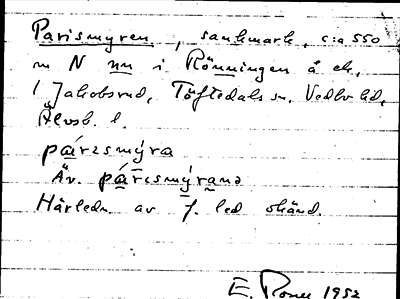 Parismyren, sankmark, c:a 550
m N nn i Rönningen å ek.
1 Jakobsrud, Töftedals sn. Vedbo hd,
Älvsb. l.
párɩsmýra
Äv. párɩsmýrana
Härledn. av f. led okänd.
E. 1952